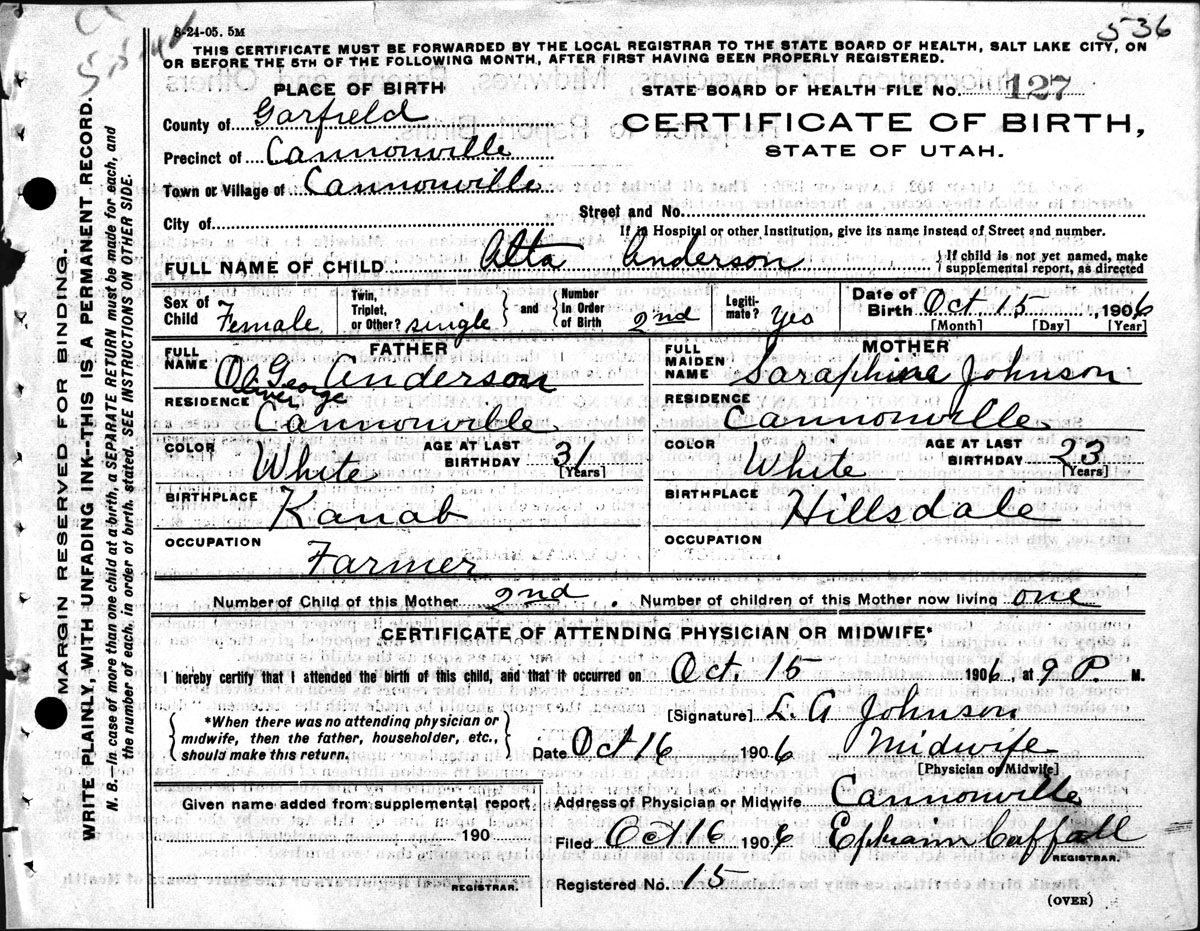 8-24-05. 5M
536
THIS CERTIFICATE MUST BE FORWARDED BY THE LOCAL REGISTRAR TO THE STATE BOARD OF HEALTH, SALT LAKE CITY, ON
OR BEFORE THE 5TH OF THE FOLLOWING MONTH, AFTER FIRST HAVING BEEN PROPERLY REGISTERED.
PLACE OF BIRTH
County of Garfield
Precinct of Cannonville
Town or Village of Cannonville
City of
STATE BOARD OF HEALTH FILE No. 127
CERTIFICATE OF BIRTH,
STATE OF UTAH.
Street and No.
If in Hospital or other Institution, give its name instead of Street and number.
FULL NAME OF CHILD Alta Anderson
If child is not yet named, make
supplemental report, as directed
Sex of Child Female
Twin, Triplet, or Other? single
and
Number In Order of Birth 2nd
Legitimate? Yes
Date of Birth Oct 15 1906
[Month] [Day] [Year]
FATHER
FULL NAME Anderson
RESIDENCE
Cannonville
COLOR White
AGE AT LAST BIRTHDAY 31
[Years]
BIRTHPLACE
Kanab
OCCUPATION
Farmer
MOTHER
FULL MAIDEN NAME Johnson
RESIDENCE
Cannonville
COLOR White
AGE AT LAST BIRTHDAY 23
[Years]
BIRTHPLACE
Hillsdale
OCCUPATION
Number of Child of this Mother 2nd. Number of children of this Mother now living one
CERTIFICATE OF ATTENDING PHYSICIAN OR MIDWIFE*
I hereby certify that I attended the birth of this child, and that it occurred on Oct. 15 1906, at 9 P. M.
*When there was no attending physician or
midwife, then the father, householder, etc.,
should make this return.
[Signature] L. A Johnson
Date Oct 16 1906 Midwife
[Physician or Midwife]
Given name added from supplemental report
190
REGISTRAR.
Address of Physician or Midwife Cannonville
Filed Oct 16 1906 Ephraim Caffall
REGISTRAR.
Registered No. 15
(OVER)
MARGIN RESERVED FOR BINDING.
WRITE PLAINLY, WITH UNFADING INK—THIS IS A PERMANENT RECORD.
N. B.—In case of more than one child at a birth, a SEPARATE RETURN must be made for each, and
the number of each, in order of birth, stated. SEE INSTRUCTIONS ON OTHER SIDE.